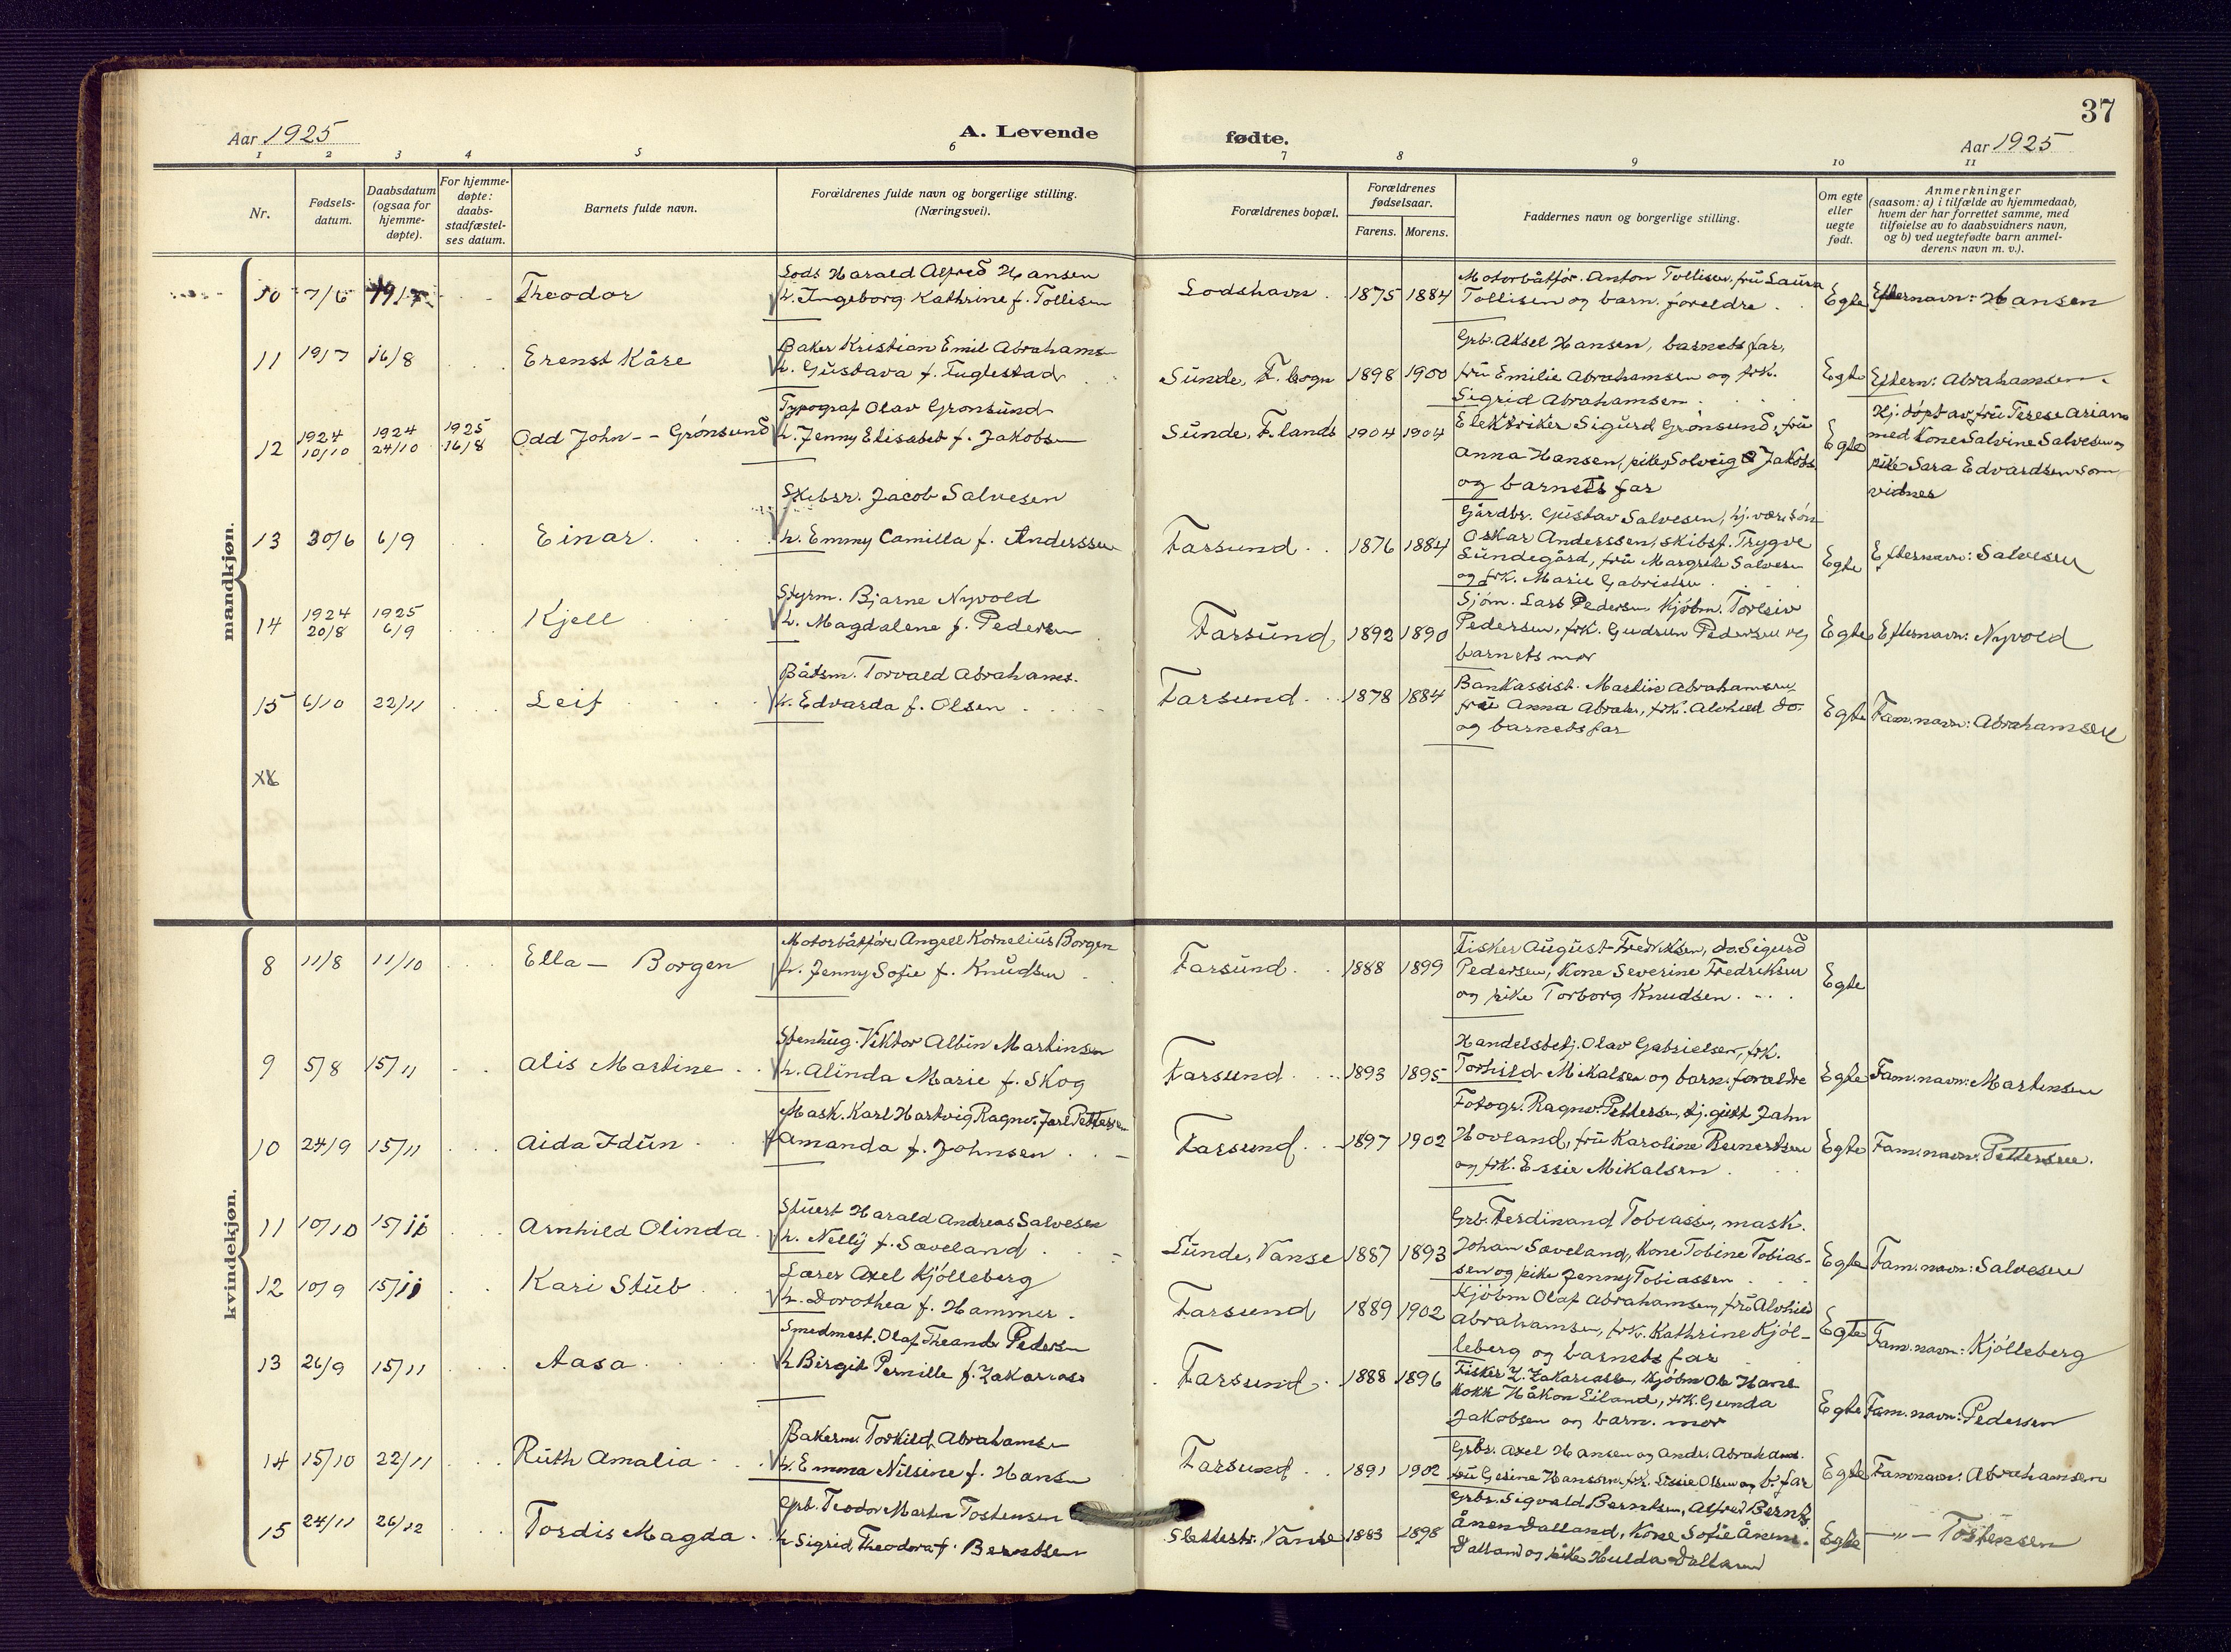 37
Aar 1925
A. Levende
fødte.
Aar 1925
1 2 3 4 5 6 7 8 9 10 11
Nr.
Fødsels-
datum.
Daabsdatum
(ogsaa for
hjemme-
døpte).
For hjemme-
døpte:
daabs-
stadfæstel-
ses datum.
Barnets fulde navn.
Forældrenes fulde navn og borgerlige stilling.
(Næringsvei).
Forældrenes bopæl.
Forældrenes
fødselsaar.
Farens. Morens.
Faddernes navn og borgerlige stilling.
Om egte
eller
uegte
født.
Anmerkninger
(saasom: a) i tilfælde av hjemmedaab,
hvem der har forrettet samme, med
tilføielse av to daabsvidners navn,
og b) ved uegtefødte barn anmel-
derens navn m. v.).
mandkjøn.
10 7/6 Theodor
Lods Harald Alfred Hansen
h. Ingeborg Kathrine f. Tollisen
Lodshavn 1875 1884
Motorbåtfør. Anton Tollisen, frü Laura
Tollisen og barn. foreldre
Egte Efternavn: Hansen
11 19/7 16/8 Erenst Kåre
Baker Kristian Emil Abrahams
h. Güstava f. Fuglestad
Sünde, F. sogn 1898 1900
Grb. Aksel Hansen, barnets far,
frü Emilie Abrahamsen og frk.
Sigrid Abrahamsen
Egte Eftern: Abrahamsen.
12 1924 10/10 1924 24/10 1925 16/8 Odd John -- Grønsund
Typograf Olav Gronsünd
h. Jenny Elisabet f. Jakobsen
Sünde, F. lands 1904 1904
Elektriker Sigürd Grønsund, frü
Anna Hansen, pike Solveig Jakobs
og barnets far
Egte
Hj. døpt av frü Terese Arians
med Kone Salvine Salvesen og
pike Sara Edvardsen som
vidner
13 30/6 6/9 Einar
Skibsr. Jacob Salvesen
h. Emmy Camilla f. Anderssen
Farsund 1876 1884
Gårdbr. Güstav Salvesen, hj. vær. søn
Oskar Anderssen, skibsf. Trygve
Sündegård, frü Margrete Salvesen
og frk. Marie Gabrielsen
Egte Efternavn: Salvesen
14 1924 20/8 1925 6/9 Kjell
Styrm. Bjarne Nyvold
h. Magdalene f. Pedersen
Farsünd 1892 1890
Sjøm. Lars Pedersen, Kjøbm. Torleiv
Pedersen, frk. Gudrun Pedersen og
barnets mor
Egte Efternavn: Nyvold
15 6/10 22/11 Leif
Båtsm. Torvald Abrahams.
h. Edvarda f. Olsen
Farsund 1878 1884
Bankassist. Martin Abrahamsen
frü Anna Abrah., frk. Alvhild do.
og barnets far
Egte Fam.navn: Abrahamsen
kvindekjøn.
8 11/8 11/10 Ella - Borgen
Motorbåtfører Angell Kornelius Borgen
h. Jenny Sofie f. Knüdsen
Farsünd 1888 1899
Fisker August Fredriksen, do. Sigurd
Pedersen, Kone Severine Fredriksen
og pike Torborg Knudsen
Egte
9 5/8 15/11 Alis Martine
Stenhüg. Viktor Albin Martinsen
h. Alinda Marie f. Skog
Farsund 1893 1895
Handelsbetj. Olav Gabrielsen, frk.
Torhild Mikalsen og barn. foreldre
Egte Fam.navn: Martinsen
10 24/9 15/11 Aida Idün
Mask. Karl Hartvig Ragnv. Jarl Pettersen
Amanda f. Johnsen
Farsund 1897 1902
Fotogr. Ragnv. Pettersen, hj. gütt Jahn
Hovland, frü Karoline Reinertsen
og frk. Essie Mikalsen
Egte Fam.navn: Pettersen.
11 10/10 15/11 Arnhild Olinda
Stüert Harald Andreas Salvesen
h. Nelly f. Sæveland
Lunde, Vanse 1887 1893
Grb. Ferdinand Tobiassen, mask.
Johan Sæveland, Kone Tobine Tobias-
sen og pike Jenny Tobiassen
Egte Fam.navn: Salvesen
12 10/9 15/11 Kari Stüb
Lærer Axel Kjölleberg
h. Dorothea f. Hammer
Farsund 1889 1902
Kjøbm Olaf Abrahamsen, frü Alvhild
Abrahamsen, frk. Kathrine Kjöl-
leberg og barnets far
Egte Fam.navn: Kjölleberg
13 26/9 15/11 Aasa
Smedmest. Olaf Theand. Pedersen
h Birgit Pernille f. Zakarias
Farsund 1888 1896
Fisker Z. Zakariassen, Kjøbm Ole Hans
kokk Håkon Eiland, frk. Gunda
Jakobsen og barn. mor
Egte Fam.navn: Pedersen
14 15/10 22/11 Rüth Amalia
Bakerm. Torkild Abrahamsen
h. Emma Nilsine f. Hansen
Farsund 1891 1902
Grbr. Axel Hansen og Andr. Abraham.
frü Gesine Hanssen, frk. Lissie Olsen og b. far
Egte Famnavn: Abrahamsen
15 24/11 26/12 Tordis Magda
Grb. Teodor Martin Tostensen
h Sigrid Theodora f. Berntsen
Slettestr., Vanse 1883 1898
Grbr. Sigvald Berntsen, Alfred Bernts
Ånen Dalland, Kone Sofie Ånen
Dalland og pike Hulda Dalland
Egte —„— Tostensen